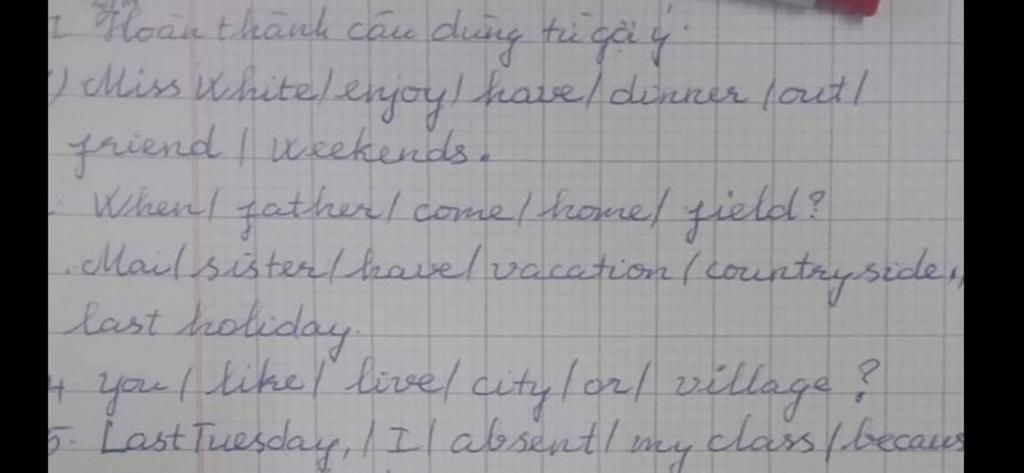 I Hoàn thành câu dùng từ gợi ý.
) Miss White/ enjoy/ have/ dinner / out/
friend / weekends.
. When/ father/ come/ home/ field?
. Mai/ sister/ have/ vacation / countryside,
last holiday.
4. you / like/ live/ city/ or/ village ?
5. Last Tuesday, / I/ absent/ my class / becaus